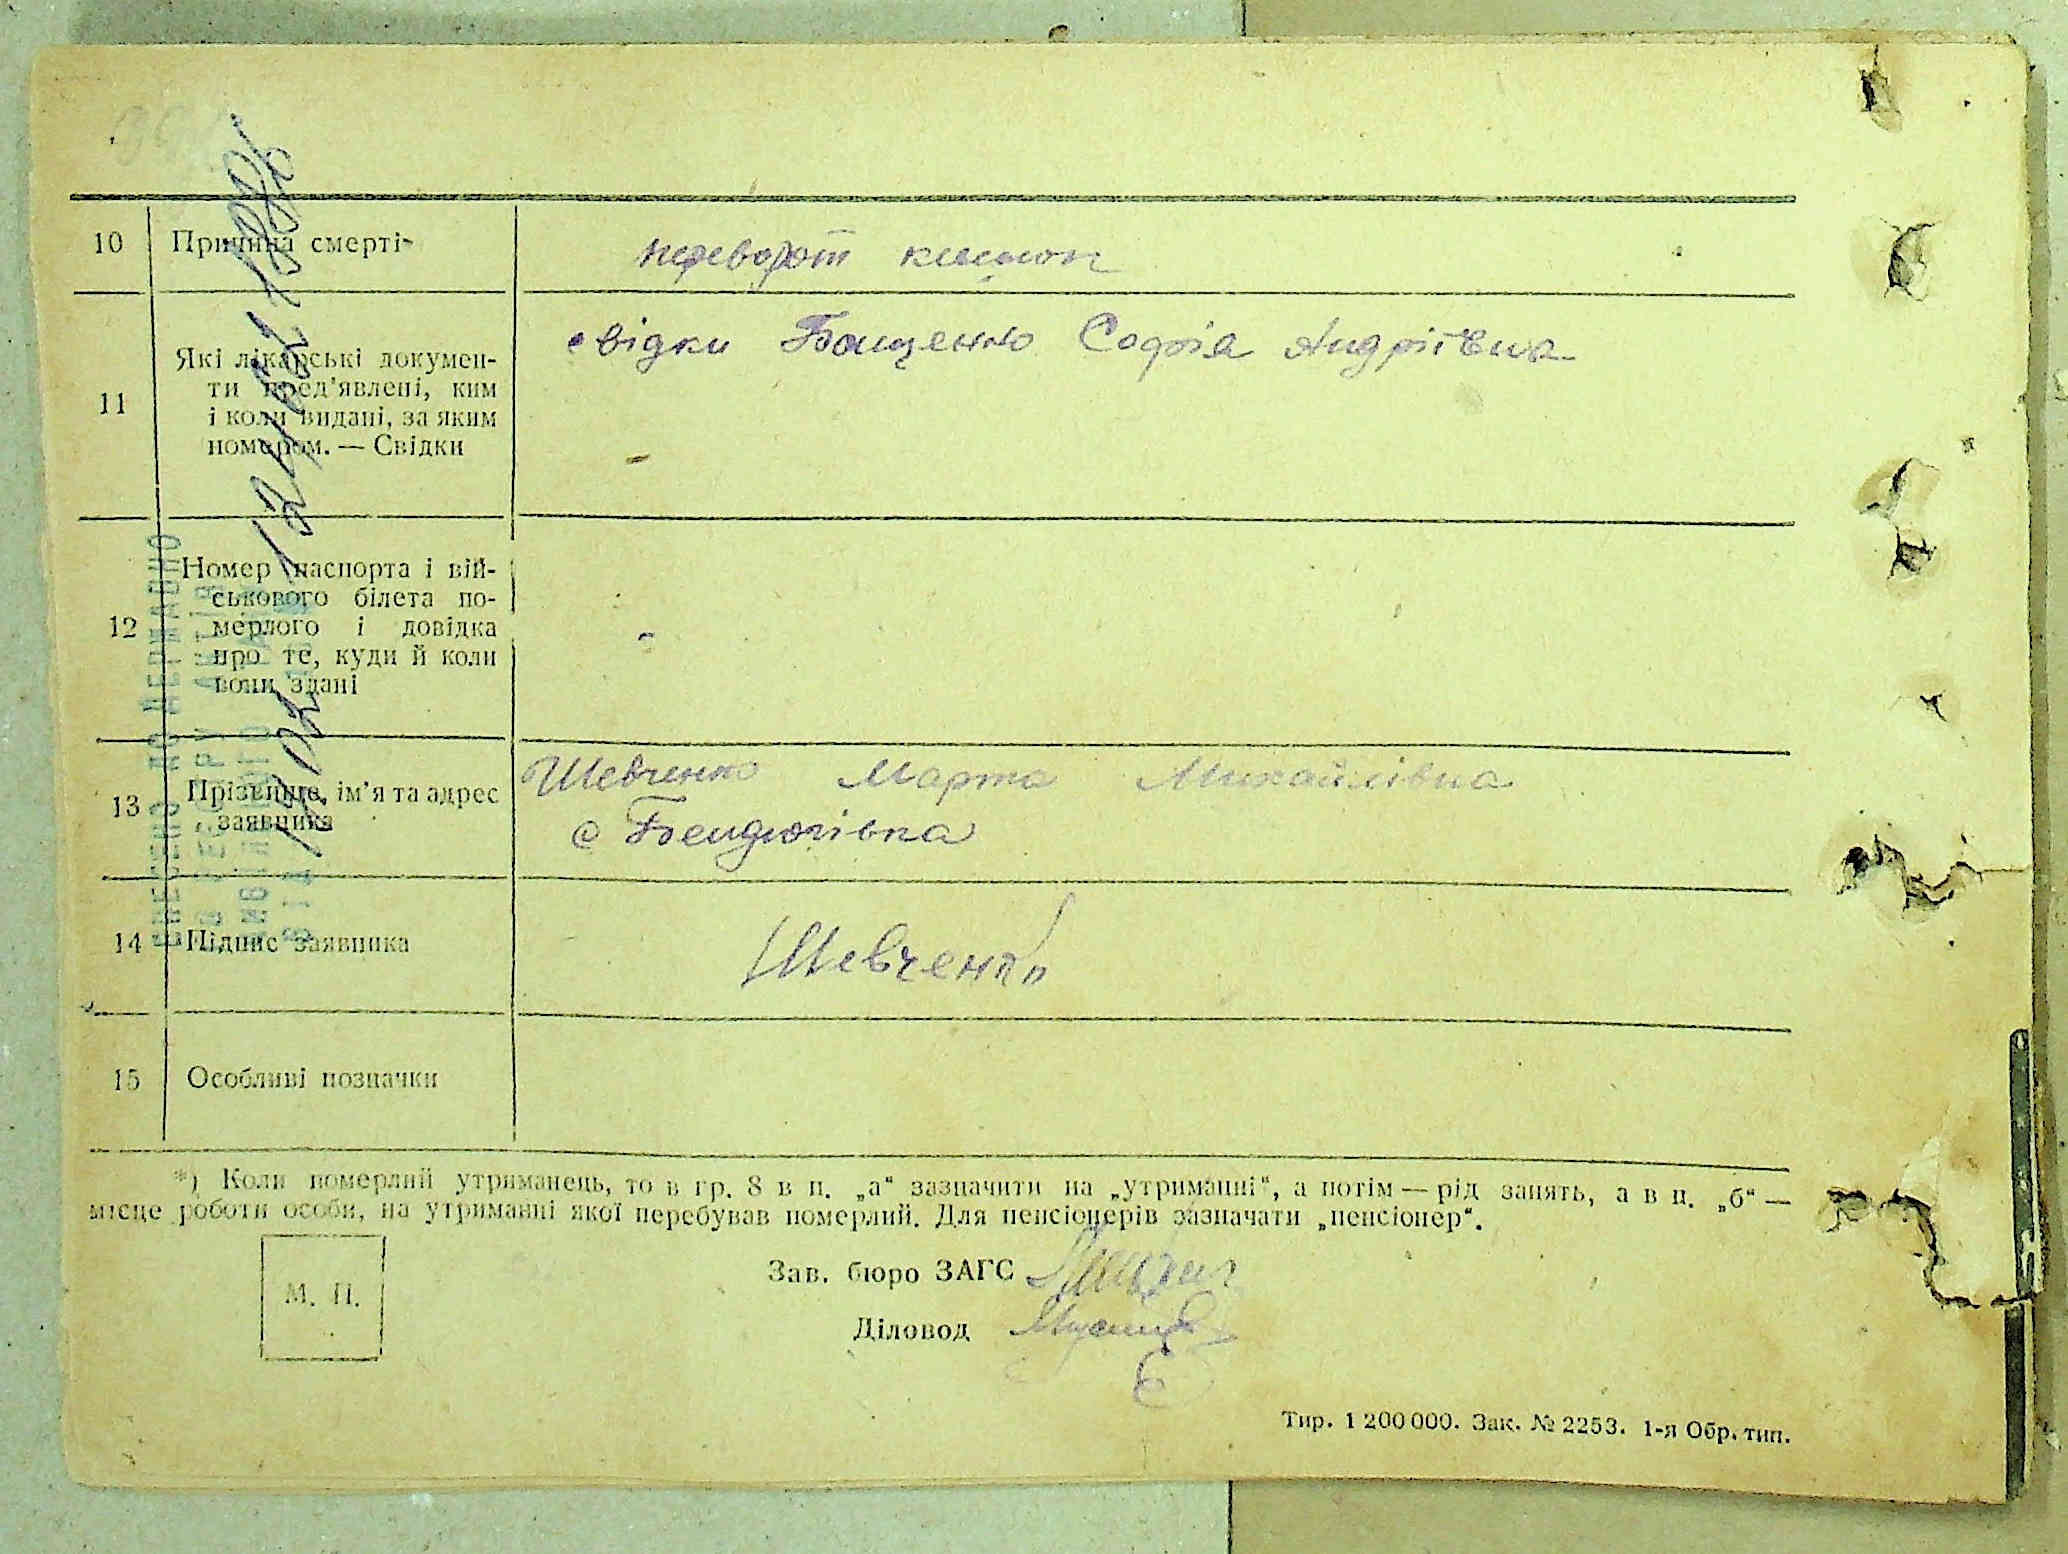 10 Причина смерті переворот кишок
11 Які лікарські докумен-
ти пред'явлені, ким
і коли видані, за яким
номером. — Свідки
свідки Бощенко Софія Андріївна
12 Номер паспорта і вій-
ськового білета по-
мерлого і довідка
про те, куди й коли
вони здані
-
13 Прізвище, ім'я та адрес
заявника
Шевченко Марта Михайлівна
с Бендюгівка
14 Підпис заявника Шевченко
15 Особливі позначки
*) Коли померлий утриманець, то в гр. 8 в п. „а“ зазначити на „утриманні“, а потім — рід занять, а в п. „б“ —
місце роботи особи, на утриманні якої перебував померлий. Для пенсіонерів зазначати „пенсіонер“.
М. П.
Зав. бюро ЗАГС
Діловод
Тир. 1 200 000. Зак. № 2253. 1-я Обр. тип.
ВНЕСЕНО ДО ДЕРЖАВНО
РЕЄСТРУ АКТІВ